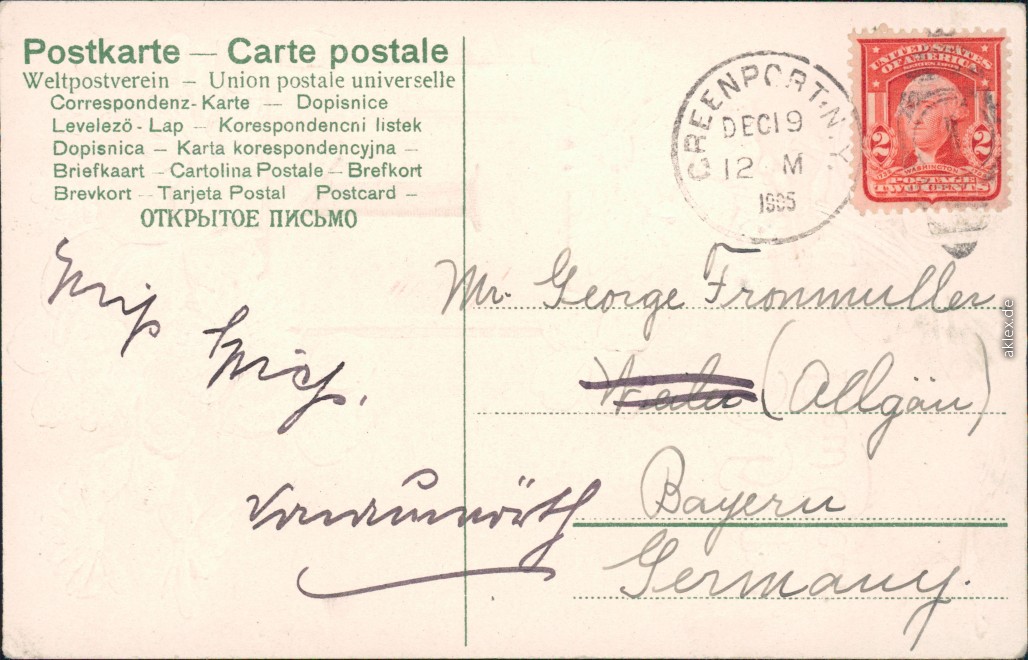 Postkarte — Carte postale
Weltpostverein — Union postale universelle
Correspondenz-Karte — Dopisnice
Levelező-Lap — Korespondencni listek
Dopisnica — Karta korespondencyjna —
Briefkaart — Cartolina Postale — Brefkort
Brevkort — Tarjeta Postal Postcard —
ОТКРЫТОЕ ПИСЬМО
GREENPORT, N.Y.
DEC 19
12 M
1905
UNITED STATES
OF AMERICA
2 2
WASHINGTON
POSTAGE
TWO CENTS
Mr. George Fronmuller
(Allgäu)
Bayern
Germany.
akfex.de